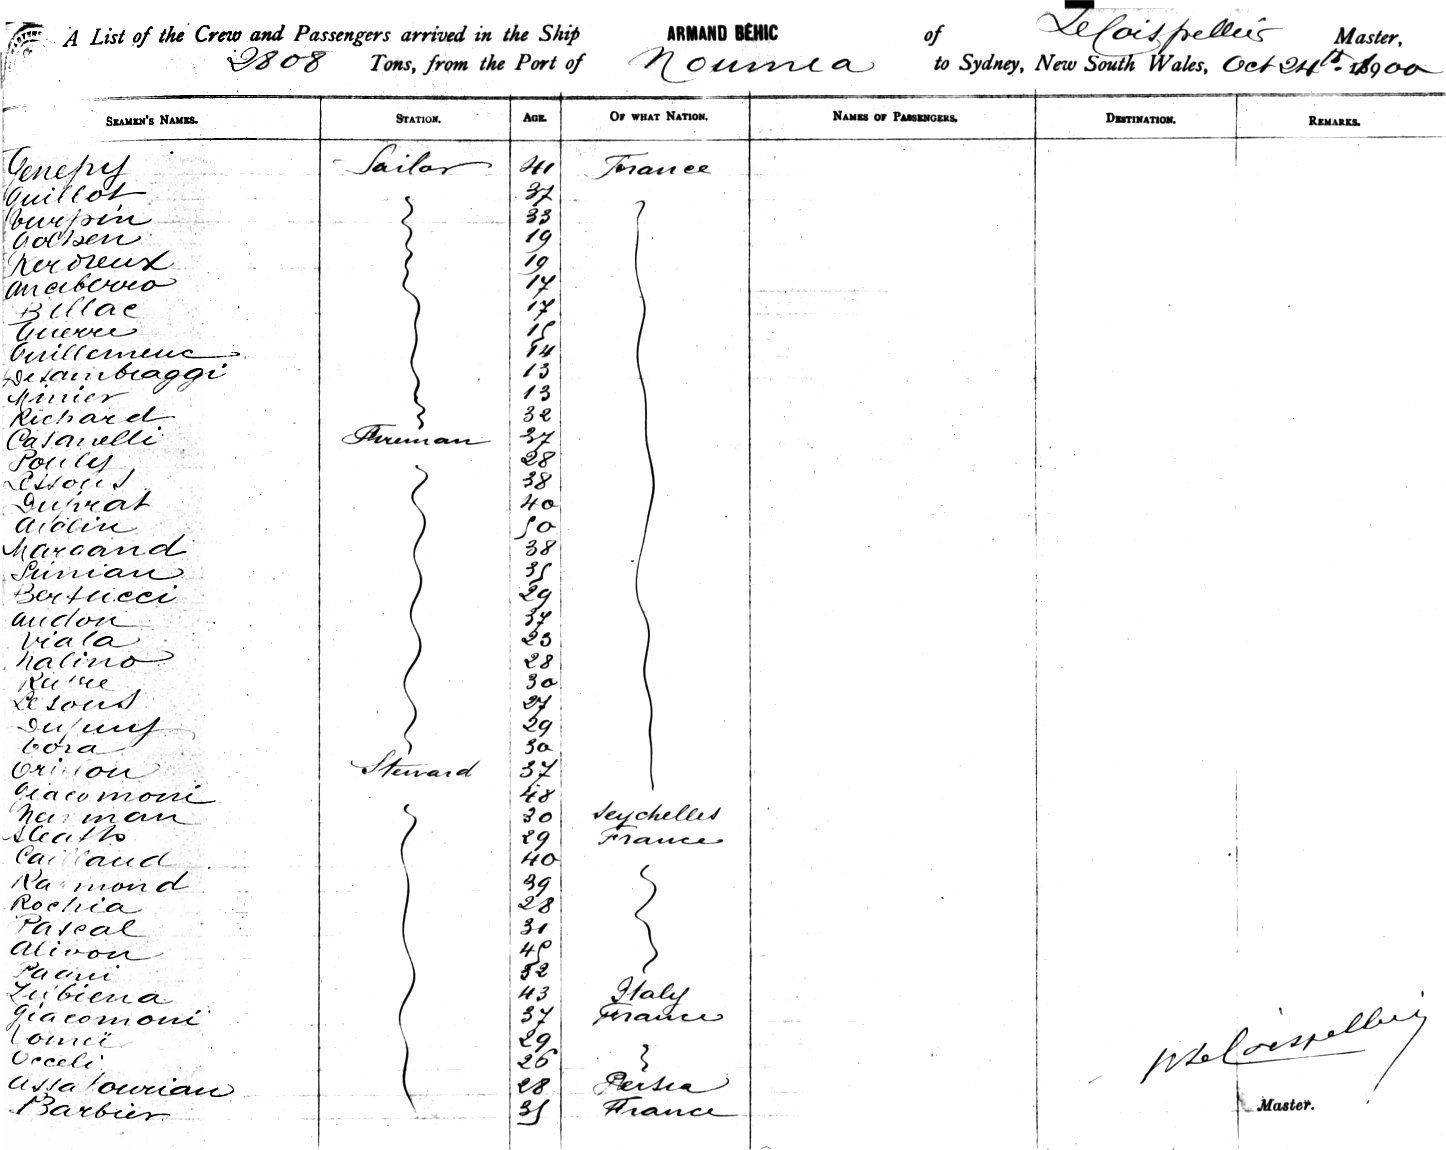 A List of the Crew and Passengers arrived in the Ship ARMAND BÉHIC of Le Coispellier Master,
2808 Tons, from the Port of Noumea to Sydney, New South Wales, Oct 24th 1900
SEAMEN'S NAMES. STATION. AGE. OF WHAT NATION. NAMES OF PASSENGERS. DESTINATION. REMARKS.
Genepy Sailor 41 France
Guillot 37
Turpin 33
19
Kerdreux 19
Anciberro 17
Billac 17
Guerre 15
Guillemenc 14
Desambraggi 13
Minier 13
Richard 32
Casanelli Fireman 37
Pouly 28
Lessous 38
Duprat 40
Aidlin 50
Marcand 38
Simian 35
Bertucci 29
Audon 37
Viala 23
Nalino 28
30
Lesous 27
Dupuy 29
Cora 30
Steward 37
Giacomoni 48
30 Seychelles
29 France
Caillaud 40
Raimond 39
Rochia 28
Pascal 31
Alivon 45
Pagni 32
Zubiena 43 Italy
Giacomoni 37 France
29
Occeli 26
Assatourian 28 Persia
Barbier 35 France
Le Coispellier
Master.